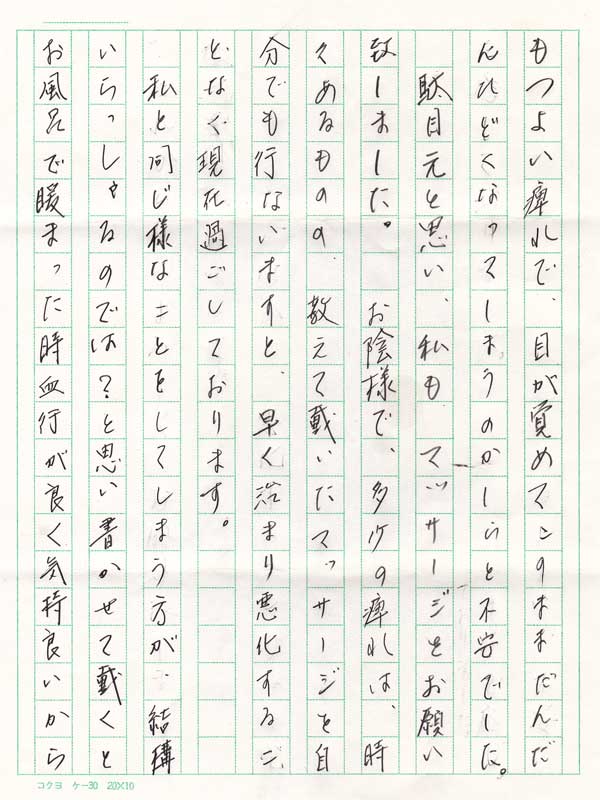 もつよい痺れで、目が覚めてこのままだんだ
んひどくなってしまうのかしらと不安でした。
駄目元と思い、私も マッサージをお願い
致しました。 お陰様で、多少の痺れは、時
々あるものの 教えて戴いたマッサージを自
分でも行ないますと、早く治まり悪化するこ
となく現在過ごしております。
私と同じ様なことをしてしまう方が、結構
いらっしゃるのでは?と思い書かせて戴くと
お風呂で暖まった時血行が良く気持良いから
コクヨ ケー30 20×10